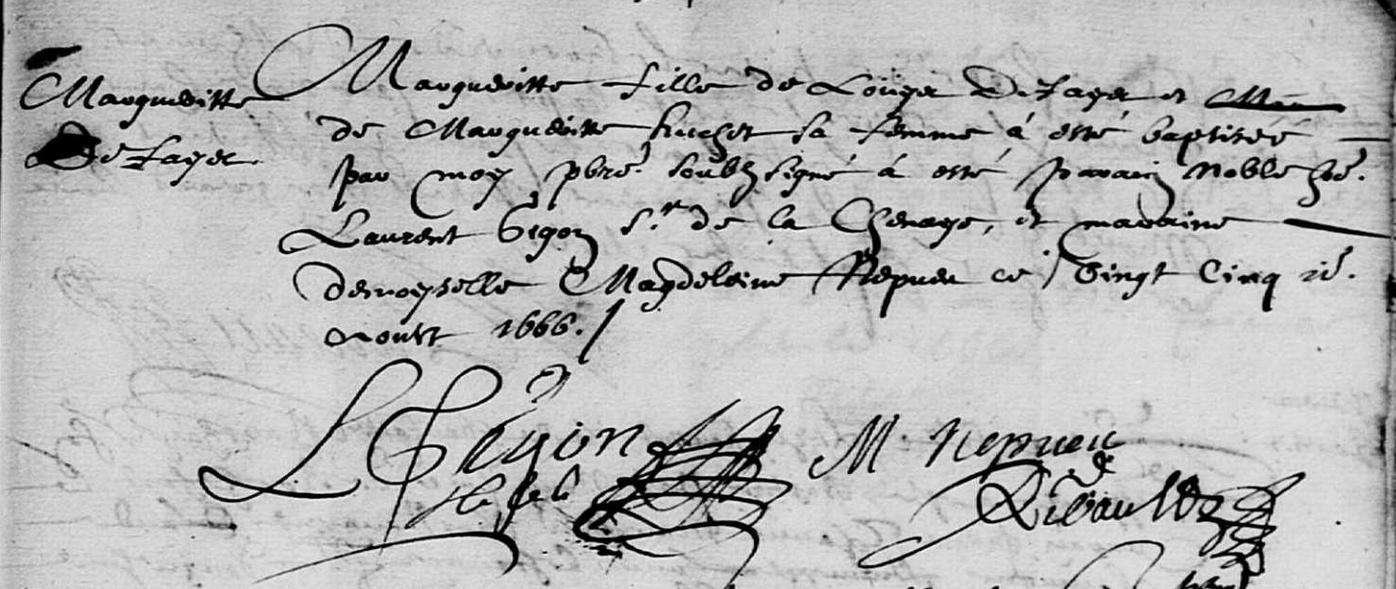 Margueritte
De Layer
Margueritte fille de Loüys De Layer et
de Margueritte huchet sa femme à esté baptisée
par moy pbre soubzsigné à esté parain Noble ho.
Laurent Gigon sr de la Chenaye, et maraine
demoyselle Magdeleine Nepueu ce Vingt Cinq ie.
Aoust 1666.
L Gigon
M. Nepueu
Ribault